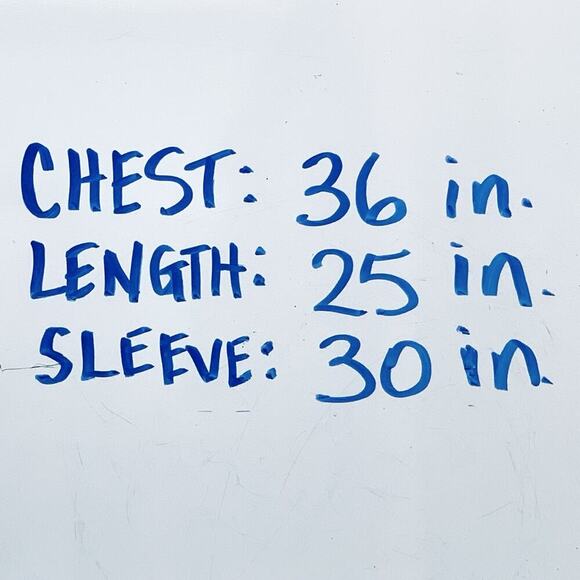 CHEST: 36 in.
LENGTH: 25 in.
SLEEVE: 30 in.